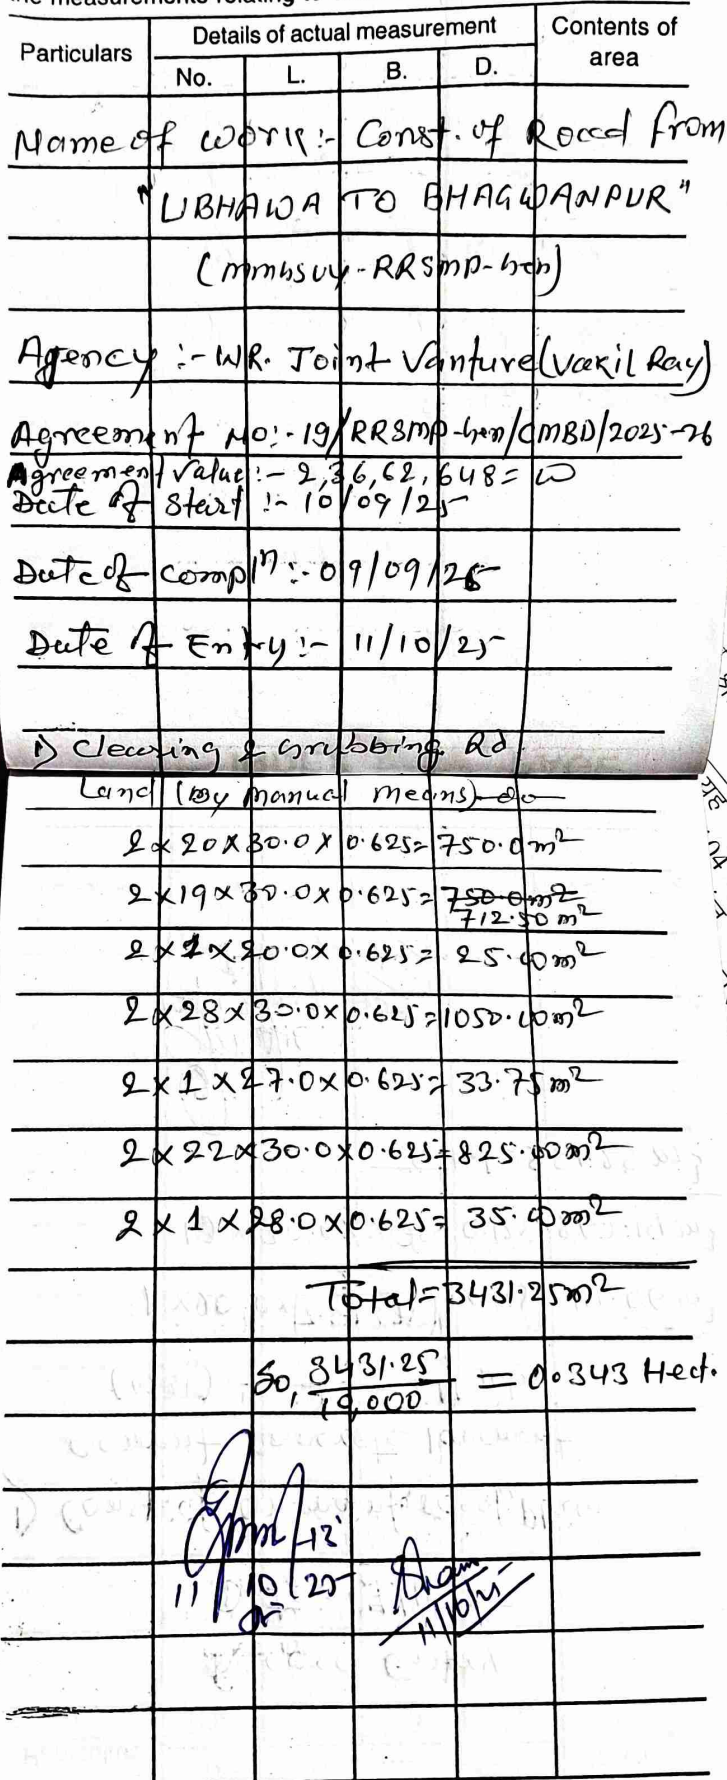 Particulars
Details of actual measurement
Contents of area
No. L. B. D.
Name of work :- Const. of Road from
"UBHAWA TO BHAGWANPUR"
(mmbsuy - RRSMP-
Agency :- WR. Joint Vanture (Vakil Ray)
Agreement No:- 19/RRSMP-/CMBD/2025-26
Agreement Value :- 2,36,62,648=00
Date of Start :- 10/09/25
Date of Compln :- 09/09/26
Date of Entry :- 11/10/25
1) Clearing & Grubbing Rd
Land (By Manual Means) do
2 x 20 x 30.0 x 0.625 = 750.0 m²
2 x 19 x 30.0 x 0.625 = 750.0 m²
712.50 m²
2 x 1 x 20.0 x 0.625 = 25.00 m²
2 x 28 x 30.0 x 0.625 = 1050.00 m²
2 x 1 x 27.0 x 0.625 = 33.75 m²
2 x 22 x 30.0 x 0.625 = 825.00 m²
2 x 1 x 28.0 x 0.625 = 35.00 m²
Total = 3431.25 m²
So, 3431.25 / 10,000 = 0.343 Hect.
11 10 25
11/10/25